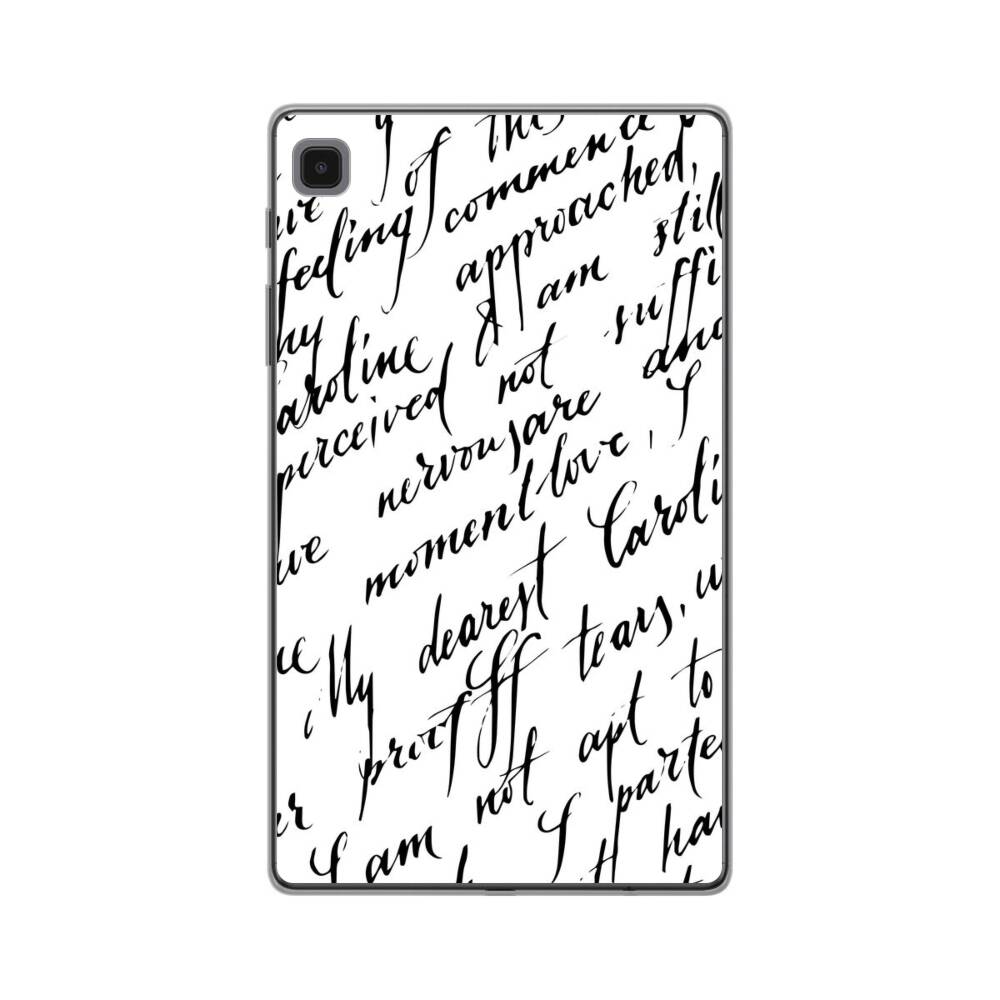 of this
feeling commence
approached,
hy am still
aroline & suffi
perceived not and
nervous are
ve moment love, I
dearest Caroli
My tears, u
proof
er not apt to
I am I parte
ha